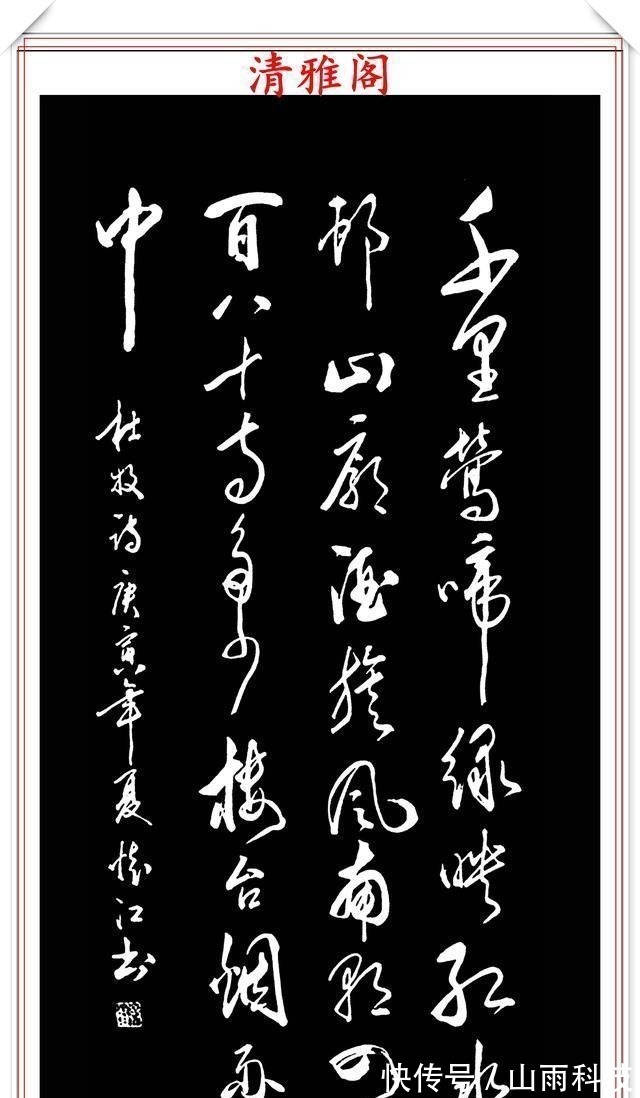 清雅阁
千里莺啼绿映红水
邨山廓酒旗风南朝四
百八十寺多少楼台烟雨
中
杜牧诗庚寅年夏怀江书
快传号/山雨科技